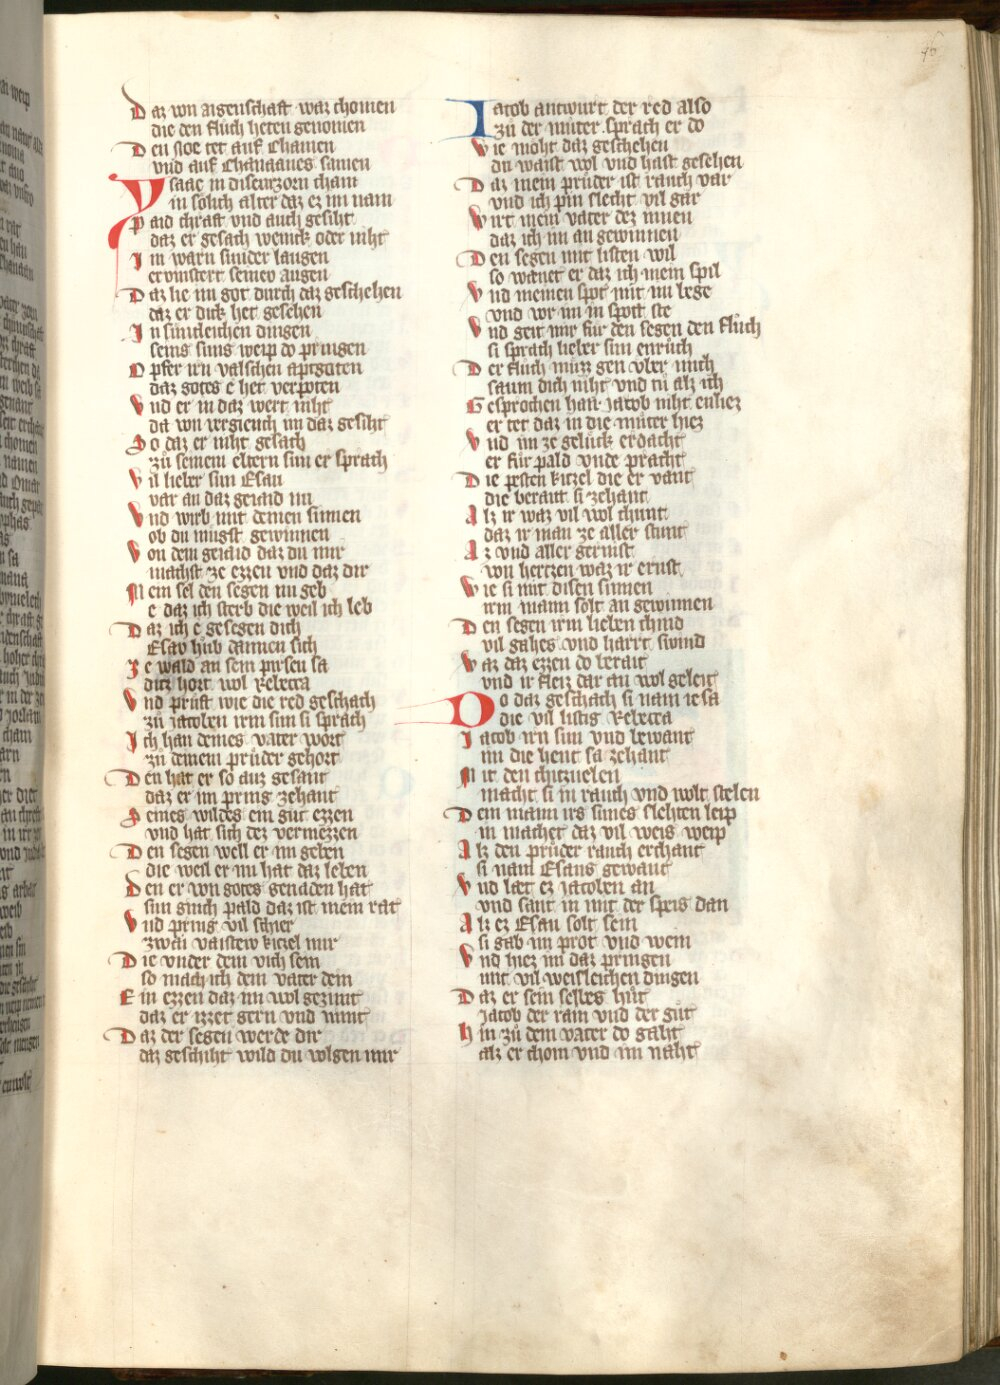 Daz von aigenschaft waz chomen
die den fluch heten genomen
Den Noe tet auf Chamen
vnd auf Chanaanes samen
Ysaac in diseurzorn cham
in solich alter daz ez im nam
Paid chraft vnd auch gesiht
daz er gesach wenick oder niht
Im warn sunder laugen
ervinstert seinev augen
Daz lie im got durch daz geschehen
daz er dick het gesehen
In sunleichen dingen
seins suns weip do pringen
Opfer irn valschen aptgoten
daz gotes e het verpoten
Vnd er in daz wert niht
da von vergiench im daz gesiht
Do daz er niht gesach
zů seinem eltern sun er sprach
Vil lieber sun Esau
var an daz geiaid nu
Vnd wirb mit deinen sinnen
ob du mugst gewinnen
Von dem geiaid daz du mir
machst ze ezzen vnd daz dir
Mein sel den segen nu geb
e daz ich sterb die weil ich leb
Daz ich e gesegen dich
Esav hub dannen sich
Ze wald an sein pirsen sa
ditz hort wol Rebecca
Vnd prüft wie die red geschach
zů iacoben irm sun si sprach
Ich han deines vater wort
zů deinem průder gehort
Den hat er so auz gesant
daz er im pring zehant
Seines wildes ein gůt ezzen
vnd hat sich dez vermezzen
Den segen well er im geben
die weil er nu hat daz leben
Den er von gotes genaden hat
sun ginch pald daz ist mein rat
Vnd pring vil schier
zwai vaistew kitzel mir
Die vnder dem vich sein
so mach ich dem vater dein
Ein ezzen daz im wol gezimt
daz er izzet gern vnd nimt
Daz der segen werde dir
daz geschiht wild du volgen mir
Iacob antwurt der red also
zů der můter sprach er do
Wie moht daz geschehen
du waist wol vnd hast gesehen
Daz mein průder ist rauch var
vnd ich pin slecht vil gar
Wirt mein vater dez innen
daz ich im an gewinnen
Den segen mit listen wil
so wænet er daz ich mein spil
Vnd meinen spot mit im lege
vnd vor im in spott ste
Vnd geit mir für den segen den flůch
si sprach lieber sun enrůch
Der fluch můzz gen vber mich
saum dich niht vnd tů alz ich
Gesprochen han Jacob niht enliez
er tet daz in die můter hiez
Vnd im ze gelück erdacht
er für pald vnde pracht
Die pesten kitzel die er vant
die berait si zehant
Alz ir waz vil wol chunt
daz ir man ze aller stunt
Az vnd aller gernist
von hertzen waz ir ernst
Wie si mit disen sinnen
irm mann solt an gewinnen
Den segen irm lieben chind
vil gahes vnd harrt swind
Waz daz ezzen do berait
vnd ir fleiz dar an wol geleit
Do daz geschach si nam iesa
die vil listig Rebecca
Iacob irn sun vnd bewant
im die hent sa zehant
Mit den chitzvelen
macht si in rauch vnd wolt stelen
Dem mann irs sunes slehten leip
in machet daz vil weis weip
Alz den průder rauch erchant
si nam Esaus gewant
Vnd læt ez Jacoben an
vnd sant in mit der speis dan
Alz ez Esau solt sein
si gab im prot vnd wein
Vnd hiez im daz pringen
mit vil weisleichen dingen
Daz er sein selbes hůt
Jacob der rain vnd der gůt
Hin zů dem vater do gaht
alz er chom vnd im naht